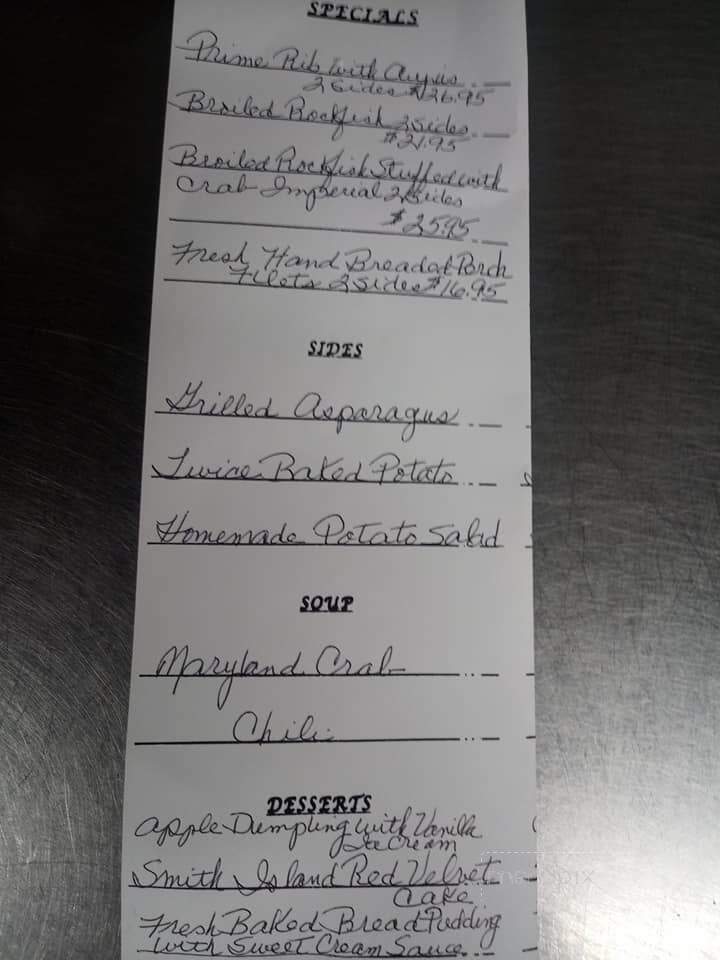 SPECIALS
Prime Rib with Aujuis
2 Sides $26.95
Broiled Rockfish 2 sides
$21.95
Broiled Rockfish Stuffed with
Crab Imperial 2 Sides
$25.95
Fresh Hand Breaded Perch
Filets 2 sides $16.95
SIDES
Grilled Asparagus
Twice Baked Potato
Homemade Potato Salad
SOUP
Maryland Crab
Chili
DESSERTS
Apple Dumpling with Vanilla
Ice Cream
Smith Island Red Velvet
Cake
Fresh Baked Bread Pudding
with Sweet Cream Sauce